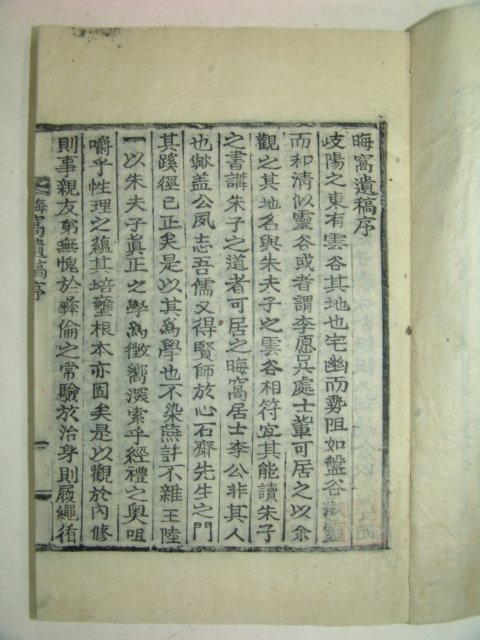 晦窩遺稿序
岐陽之東有雲谷其地也宅幽而勢阻如盤谷淑
而和清似靈谷或者謂李愿吳處士軰可居之以余
觀之其地名與朱夫子之雲谷相符宜其能讀朱子
之書講朱子之道者可居之晦窩居士李公非其人
也歟盖公夙志吾儒又得賢師於心石齋先生之門
其蹊徑已正矣是以其爲學也不染燕許不雜王陸
一以朱夫子眞正之學爲徵嚮深索乎經禮之奧咀
嚼乎性理之蘊其培壅根本亦固矣是以觀於內修
則事親友弟無愧於彛倫之常驗於治身則履繩
晦窩遺稿序
一